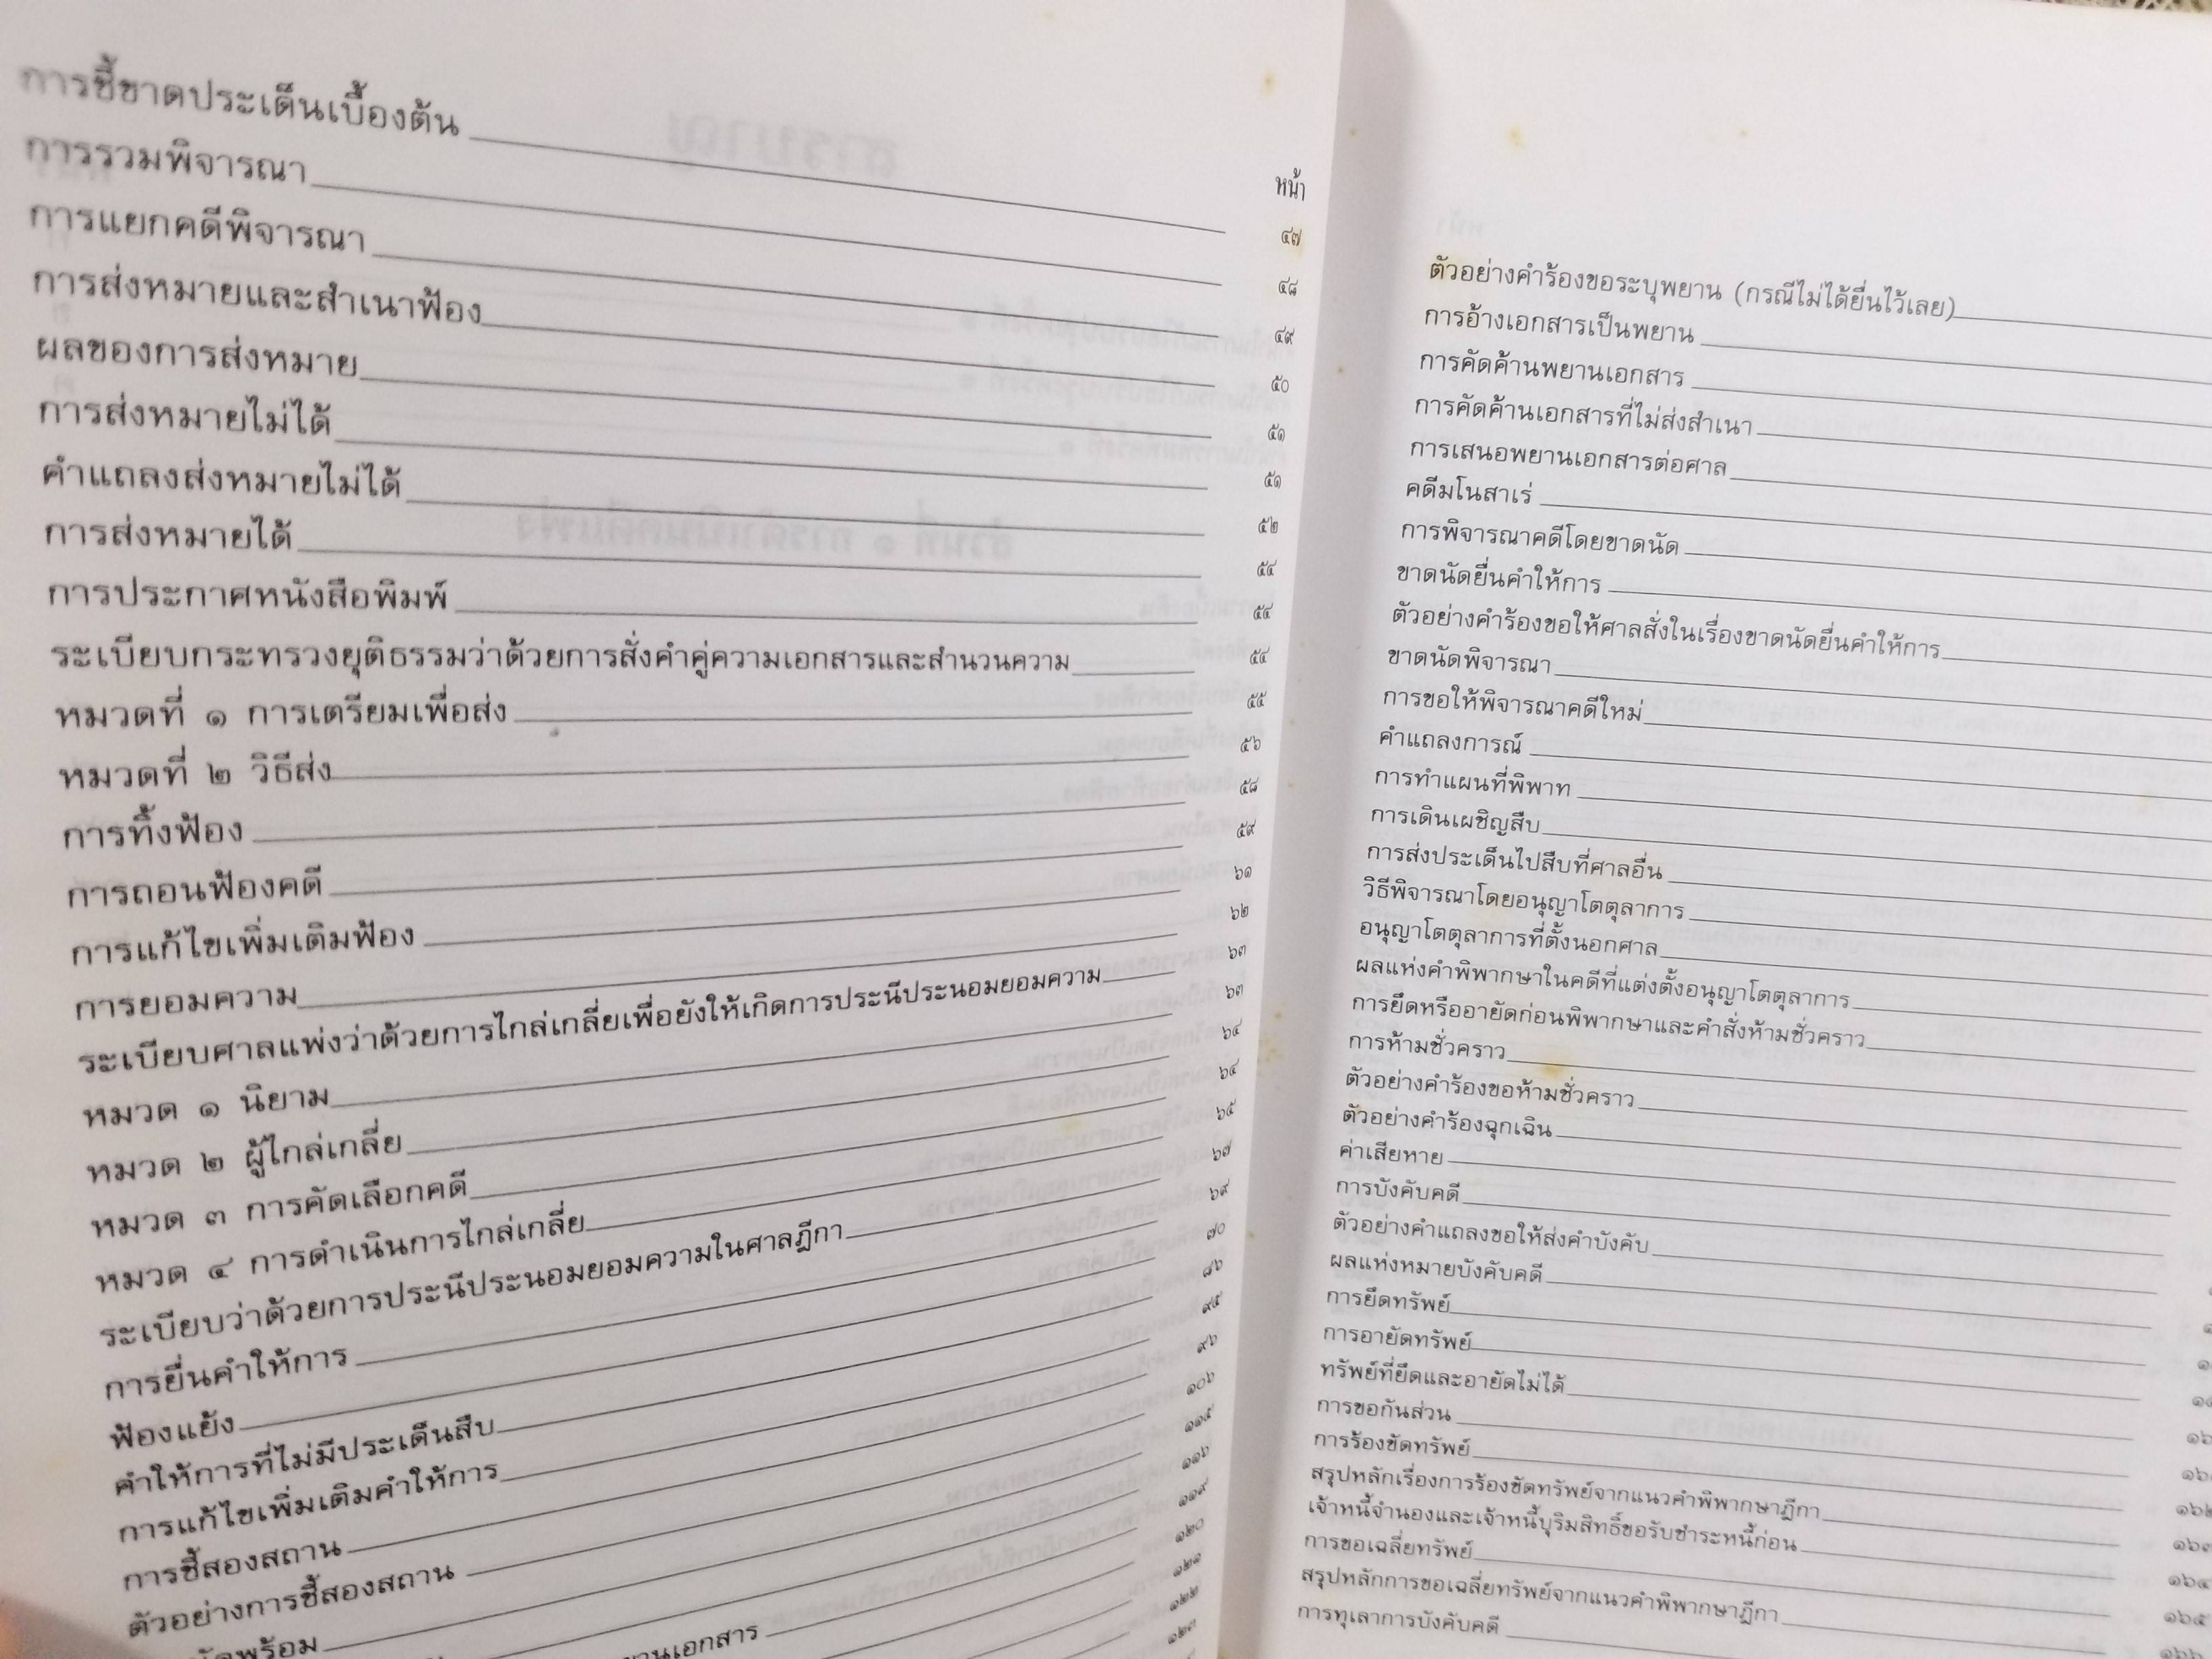 หน้า
การชี้ขาดประเด็นเบื้องต้น ๔๗
การรวมพิจารณา ๔๘
การแยกคดีพิจารณา ๔๙
การส่งหมายและสำเนาฟ้อง ๕๐
ผลของการส่งหมาย ๕๑
การส่งหมายไม่ได้ ๕๑
คำแถลงส่งหมายไม่ได้ ๕๒
การส่งหมายได้ ๕๔
การประกาศหนังสือพิมพ์ ๕๔
ระเบียบกระทรวงยุติธรรมว่าด้วยการสั่งคำคู่ความเอกสารและสำนวนความ ๕๔
หมวดที่ ๑ การเตรียมเพื่อส่ง ๕๕
หมวดที่ ๒ วิธีส่ง ๕๖
การทิ้งฟ้อง ๕๘
การถอนฟ้องคดี ๕๙
การแก้ไขเพิ่มเติมฟ้อง ๖๑
การยอมความ ๖๒
ระเบียบศาลแพ่งว่าด้วยการไกล่เกลี่ยเพื่อยังให้เกิดการประนีประนอมยอมความ ๖๓
หมวด ๑ นิยาม ๖๓
หมวด ๒ ผู้ไกล่เกลี่ย ๖๔
หมวด ๓ การคัดเลือกคดี ๖๔
หมวด ๔ การดำเนินการไกล่เกลี่ย ๖๕
ระเบียบว่าด้วยการประนีประนอมยอมความในศาลฎีกา ๖๗
การยื่นคำให้การ ๖๙
ฟ้องแย้ง ๗๐
คำให้การที่ไม่มีประเด็นสืบ ๘๖
การแก้ไขเพิ่มเติมคำให้การ ๙๕
การชี้สองสถาน ๙๖
ตัวอย่างการชี้สองสถาน ๑๐๖
พร้อม ๑๑๕
เอกสาร ๑๑๖
๑๑๙
๑๒๐
๑๒๑
๑๒๒
๑๒๓
ตัวอย่างคำร้องขอระบุพยาน (กรณีไม่ได้ยื่นไว้เลย)
การอ้างเอกสารเป็นพยาน
การคัดค้านพยานเอกสาร
การคัดค้านเอกสารที่ไม่ส่งสำเนา
การเสนอพยานเอกสารต่อศาล
คดีมโนสาเร่
การพิจารณาคดีโดยขาดนัด
ขาดนัดยื่นคำให้การ
ตัวอย่างคำร้องขอให้ศาลสั่งในเรื่องขาดนัดยื่นคำให้การ
ขาดนัดพิจารณา
การขอให้พิจารณาคดีใหม่
คำแถลงการณ์
การทำแผนที่พิพาท
การเดินเผชิญสืบ
การส่งประเด็นไปสืบที่ศาลอื่น
วิธีพิจารณาโดยอนุญาโตตุลาการ
อนุญาโตตุลาการที่ตั้งนอกศาล
ผลแห่งคำพิพากษาในคดีที่แต่งตั้งอนุญาโตตุลาการ
การยึดหรืออายัดก่อนพิพากษาและคำสั่งห้ามชั่วคราว
การห้ามชั่วคราว
ตัวอย่างคำร้องขอห้ามชั่วคราว
ตัวอย่างคำร้องฉุกเฉิน
ค่าเสียหาย
การบังคับคดี
ตัวอย่างคำแถลงขอให้ส่งคำบังคับ
ผลแห่งหมายบังคับคดี
การยึดทรัพย์
การอายัดทรัพย์
ทรัพย์ที่ยึดและอายัดไม่ได้
การขอกันส่วน
การร้องขัดทรัพย์
สรุปหลักเรื่องการร้องขัดทรัพย์จากแนวคำพิพากษาฎีกา
เจ้าหนี้จำนองและเจ้าหนี้บุริมสิทธิ์ขอรับชำระหนี้ก่อน
การขอเฉลี่ยทรัพย์
สรุปหลักการขอเฉลี่ยทรัพย์จากแนวคำพิพากษาฎีกา
การทุเลาการบังคับคดี